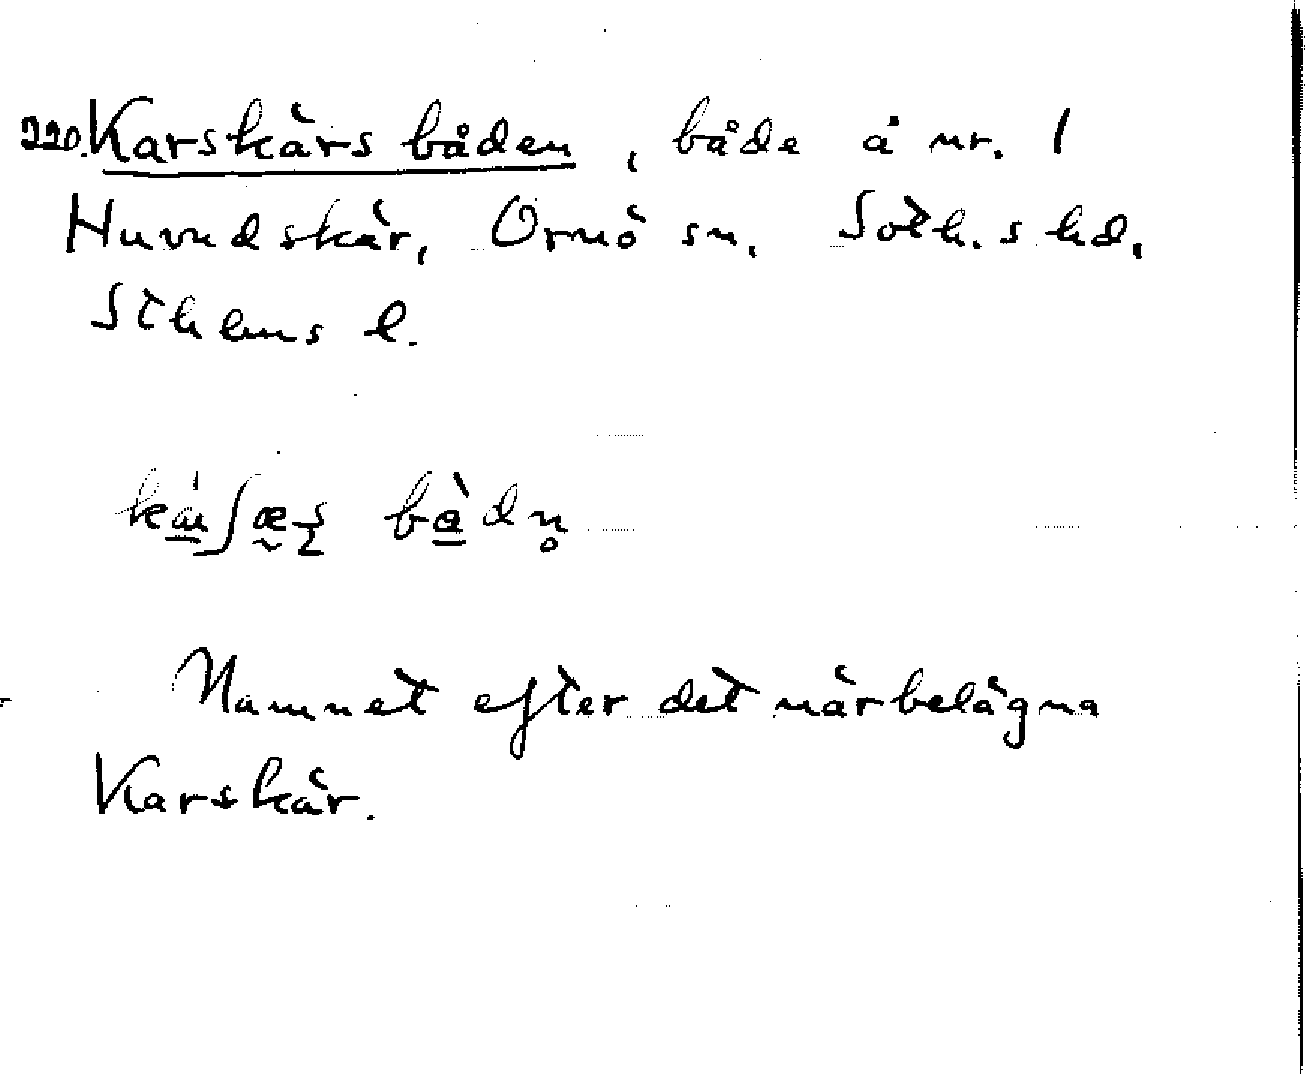 220. Karskärs båden, både å nr. 1
Huvudskär, Ornö sn, Soth.s hd,
Sthlms l.
Namnet efter det närbelägna
Karskär.